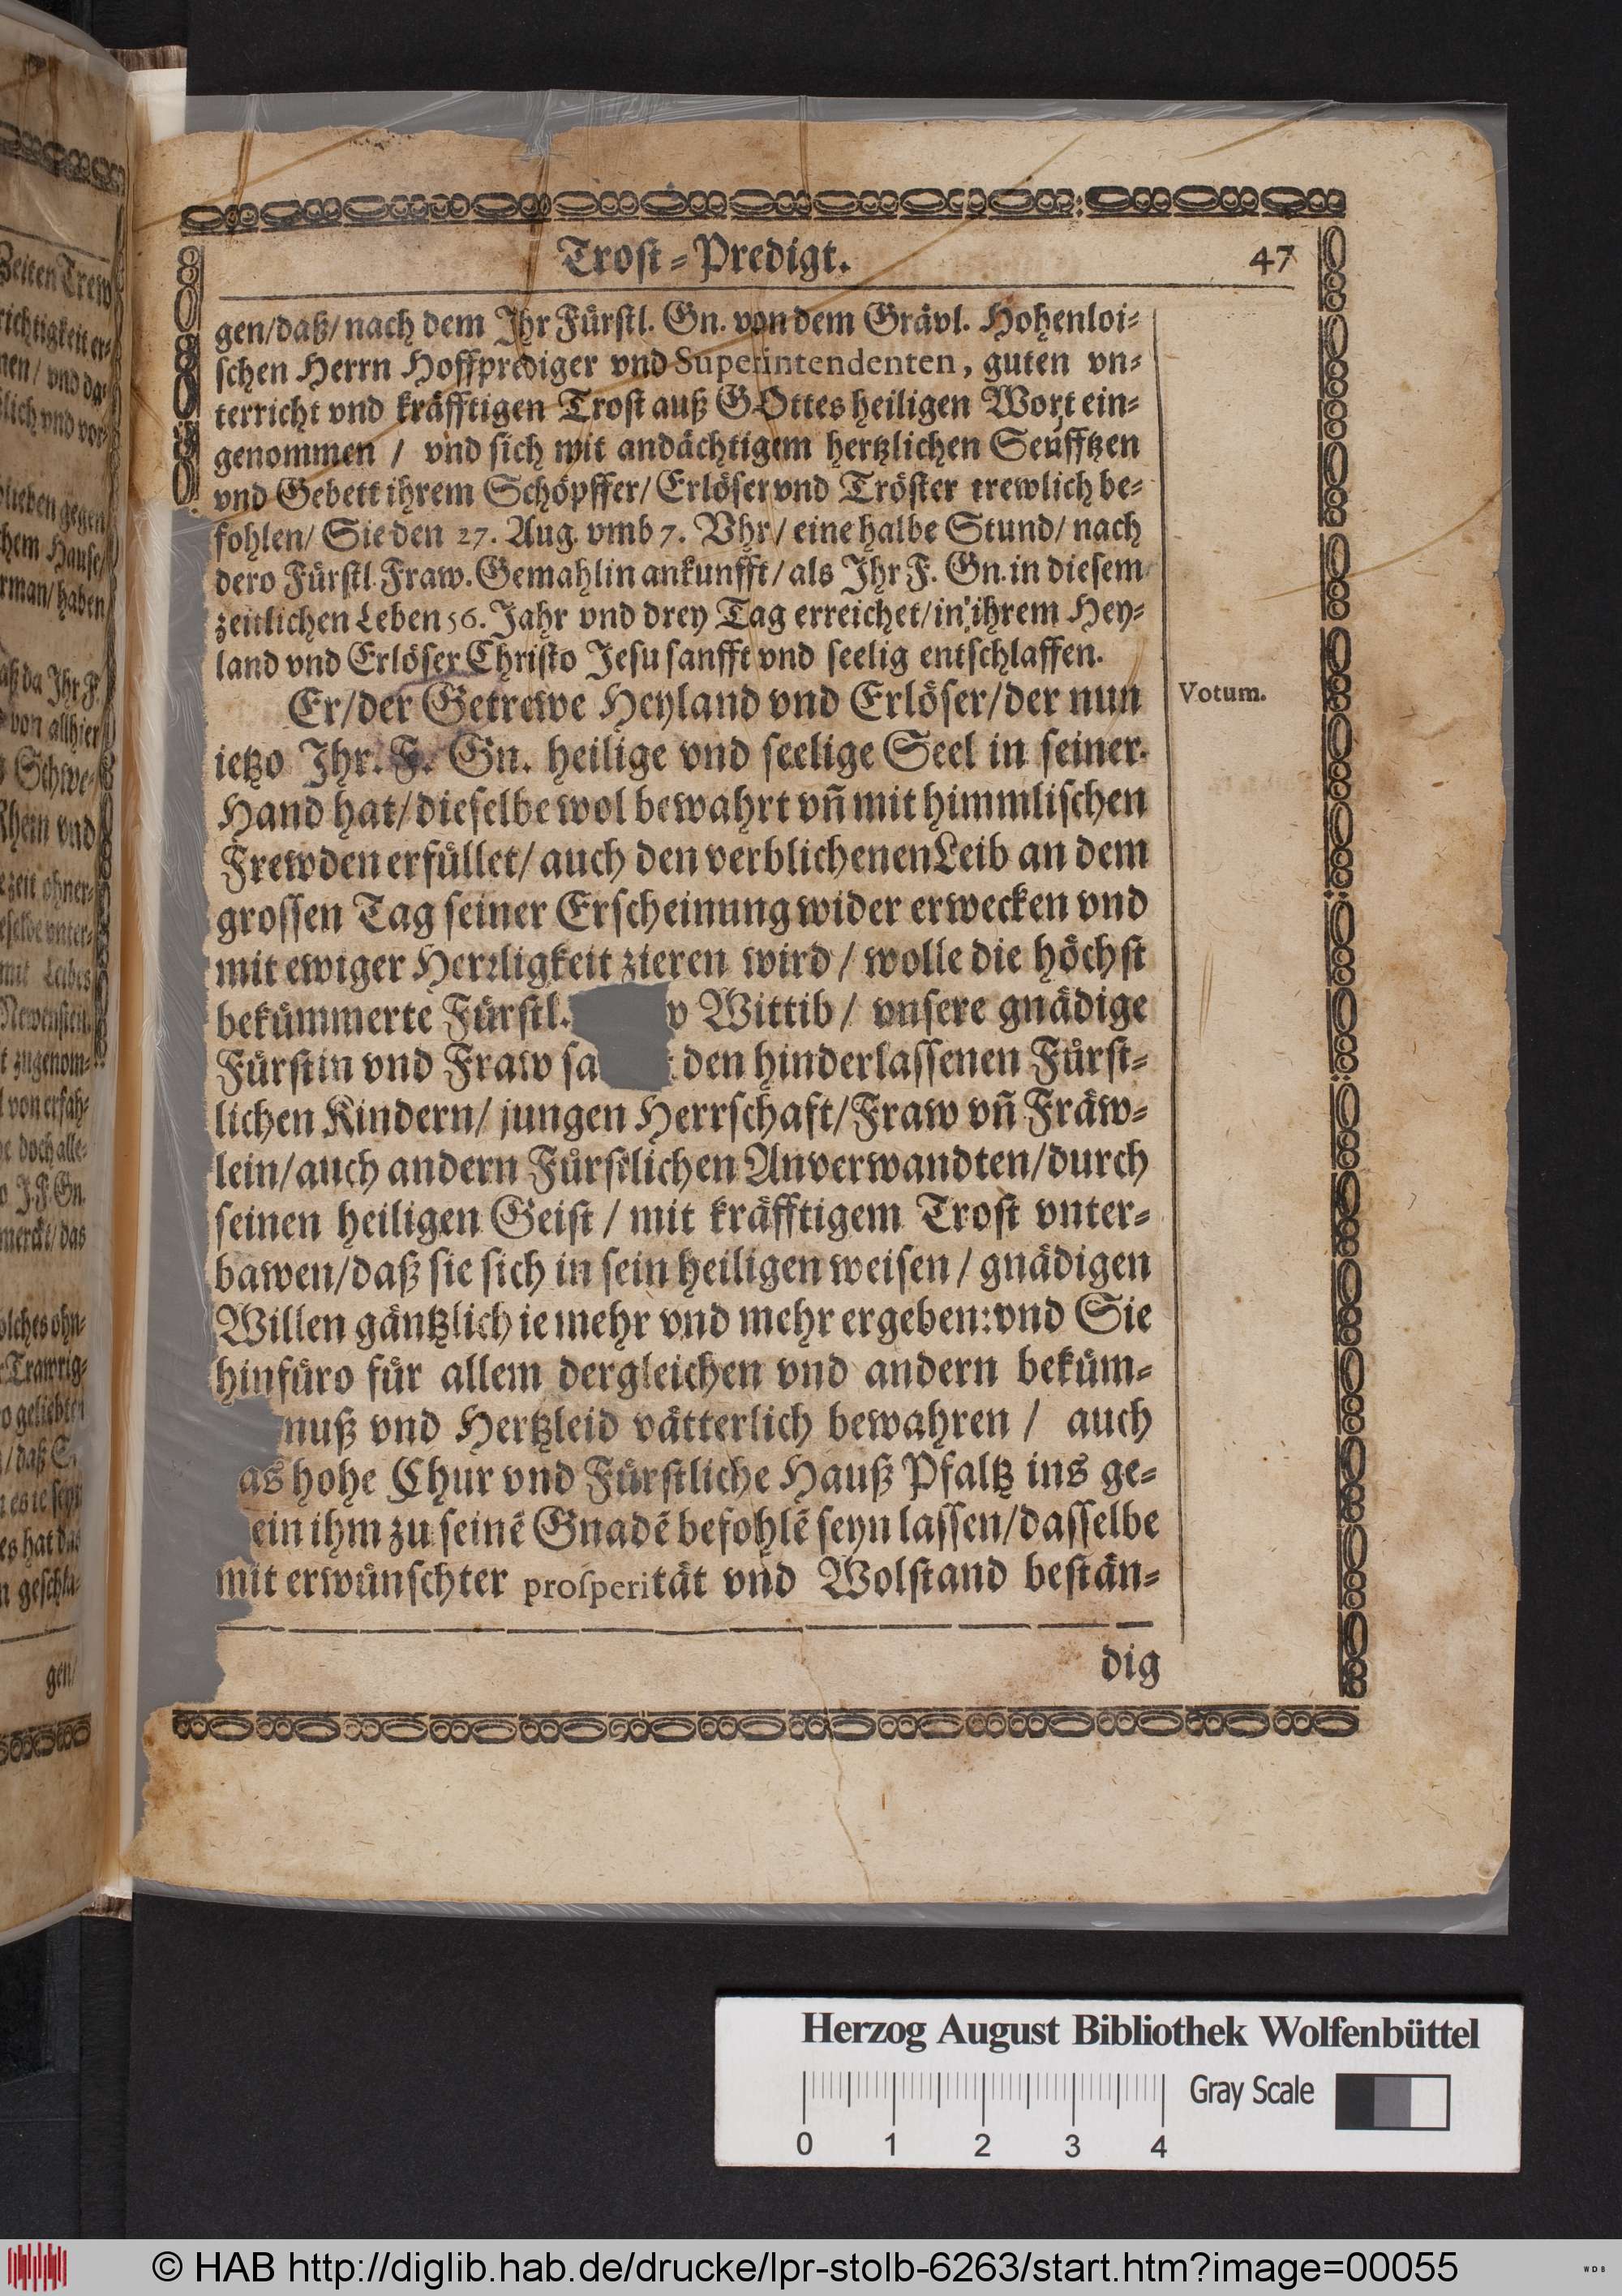 Trost-Predigt. 47
gen/daß/nach dem Ihr Fürstl. Gn. von dem Grävl. Hohenloi-
schen Herrn Hoffprediger vnd Superintendenten, guten vn-
terricht vnd kräfftigen Trost auß GOttes heiligen Wort ein-
genommen / vnd sich mit andächtigem hertzlichen Seufftzen
vnd Gebett ihrem Schöpffer/Erlöser vnd Tröster trewlich be-
fohlen/ Sie den 27. Aug. vmb 7. Vhr/ eine halbe Stund/ nach
dero Fürstl. Fraw. Gemahlin ankunfft/als Ihr F. Gn. in diesem
zeitlichen Leben 56. Jahr vnd drey Tag erreichet/in ihrem Hey-
land vnd Erlöser Christo Jesu sanfft vnd seelig entschlaffen.
Er/der Getrewe Heyland vnd Erlöser/der nun
Votum.
ietzo Ihr. F. Gn. heilige vnd seelige Seel in seiner
Hand hat/dieselbe wol bewahrt vñ mit himmlischen
Frewden erfüllet/auch den verblichenen Leib an dem
grossen Tag seiner Erscheinung wider erwecken vnd
mit ewiger Herrligkeit zieren wird / wolle die höchst
bekümmerte Fürstl. Wittib / vnsere gnädige
Fürstin vnd Fraw sa den hinderlassenen Fürst-
lichen Kindern/ jungen Herrschaft/Fraw vñ Fräw-
lein/auch andern Fürstlichen Anverwandten/durch
seinen heiligen Geist / mit kräfftigem Trost vnter-
bawen/daß sie sich in sein heiligen weisen / gnädigen
Willen gäntzlich ie mehr vnd mehr ergeben: vnd Sie
hinfüro für allem dergleichen vnd andern beküm-
nuß vnd Hertzleid vätterlich bewahren / auch
as hohe Chur vnd Fürstliche Hauß Pfaltz ins ge-
ein ihm zu seinē Gnadē befohlē seyn lassen/dasselbe
mit erwünschter prosperität vnd Wolstand bestän-
dig
Herzog August Bibliothek Wolfenbüttel
Gray Scale
0 1 2 3 4
© HAB http://diglib.hab.de/drucke/lpr-stolb-6263/start.htm?image=00055